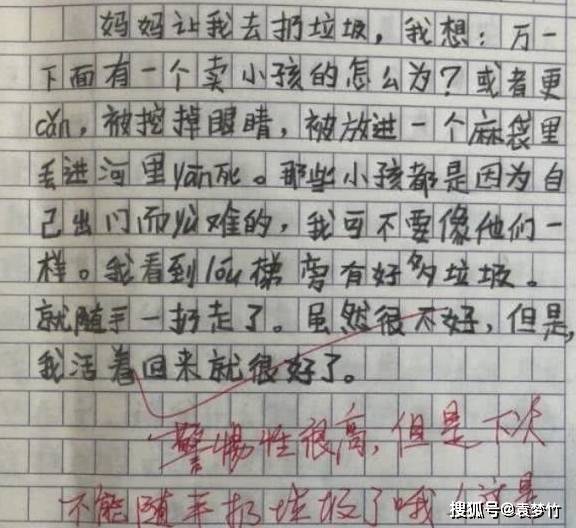 妈妈让我去扔垃圾，我想：万一
下面有一个卖小孩的怎么为？或者更
cǎn，被挖掉眼睛，被放进一个麻袋里
丢进河里yān死。那些小孩都是因为自
己出门而yù难的，我可不要像他们一
样。我看到lóu梯旁有好多垃圾。
就随手一扔走了。虽然很不好，但是，
我活着回来就很好了。
警惕性很高，但是下次
不能随手扔垃圾了哦！这是
搜狐号@袁梦竹